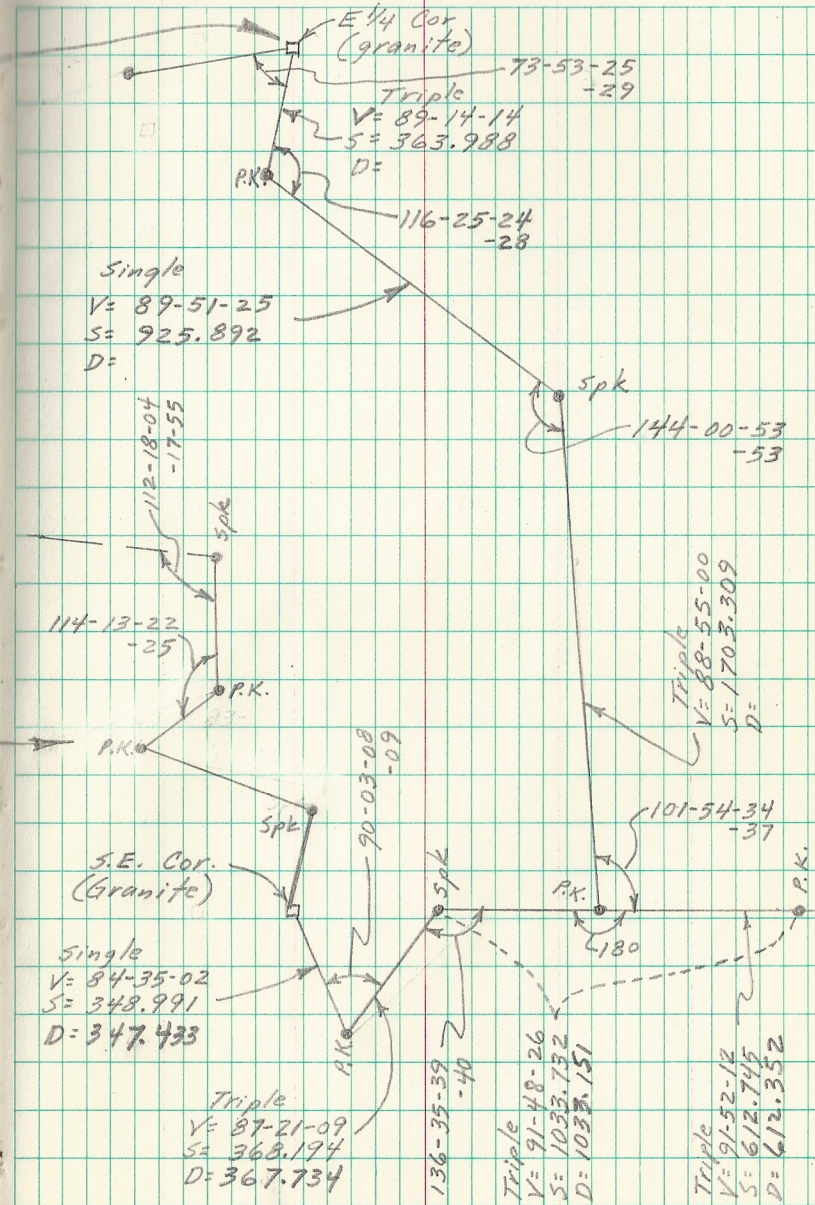 E 1/4 Cor
(granite)
73-53-25
-29
Triple
V= 89-14-14
S= 363.988
D=
P.K.
116-25-24
-28
Single
V= 89-51-25
S= 925.892
D=
Spk
144-00-53
-53
112-18-04
-17-55
Spk
114-13-22
-25
P.K.
P.K.
Triple
V= 88-55-00
S= 1703.309
D=
90-03-08
-09
Spk
101-54-34
-37
S.E. Cor.
(Granite)
Spk
P.K.
P.K.
180
Single
V= 84-35-02
S= 348.991
D= 347.433
P.K.
Triple
V= 87-21-09
S= 368.194
D= 367.734
136-35-39
-40
Triple
V= 91-48-26
S= 1033.732
D= 1033.151
Triple
V= 91-52-12
S= 612.745
D= 612.352